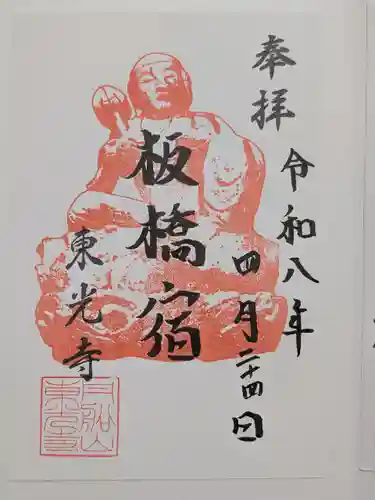 奉拝
令和八年
四月二十四日
板橋宿
東光寺